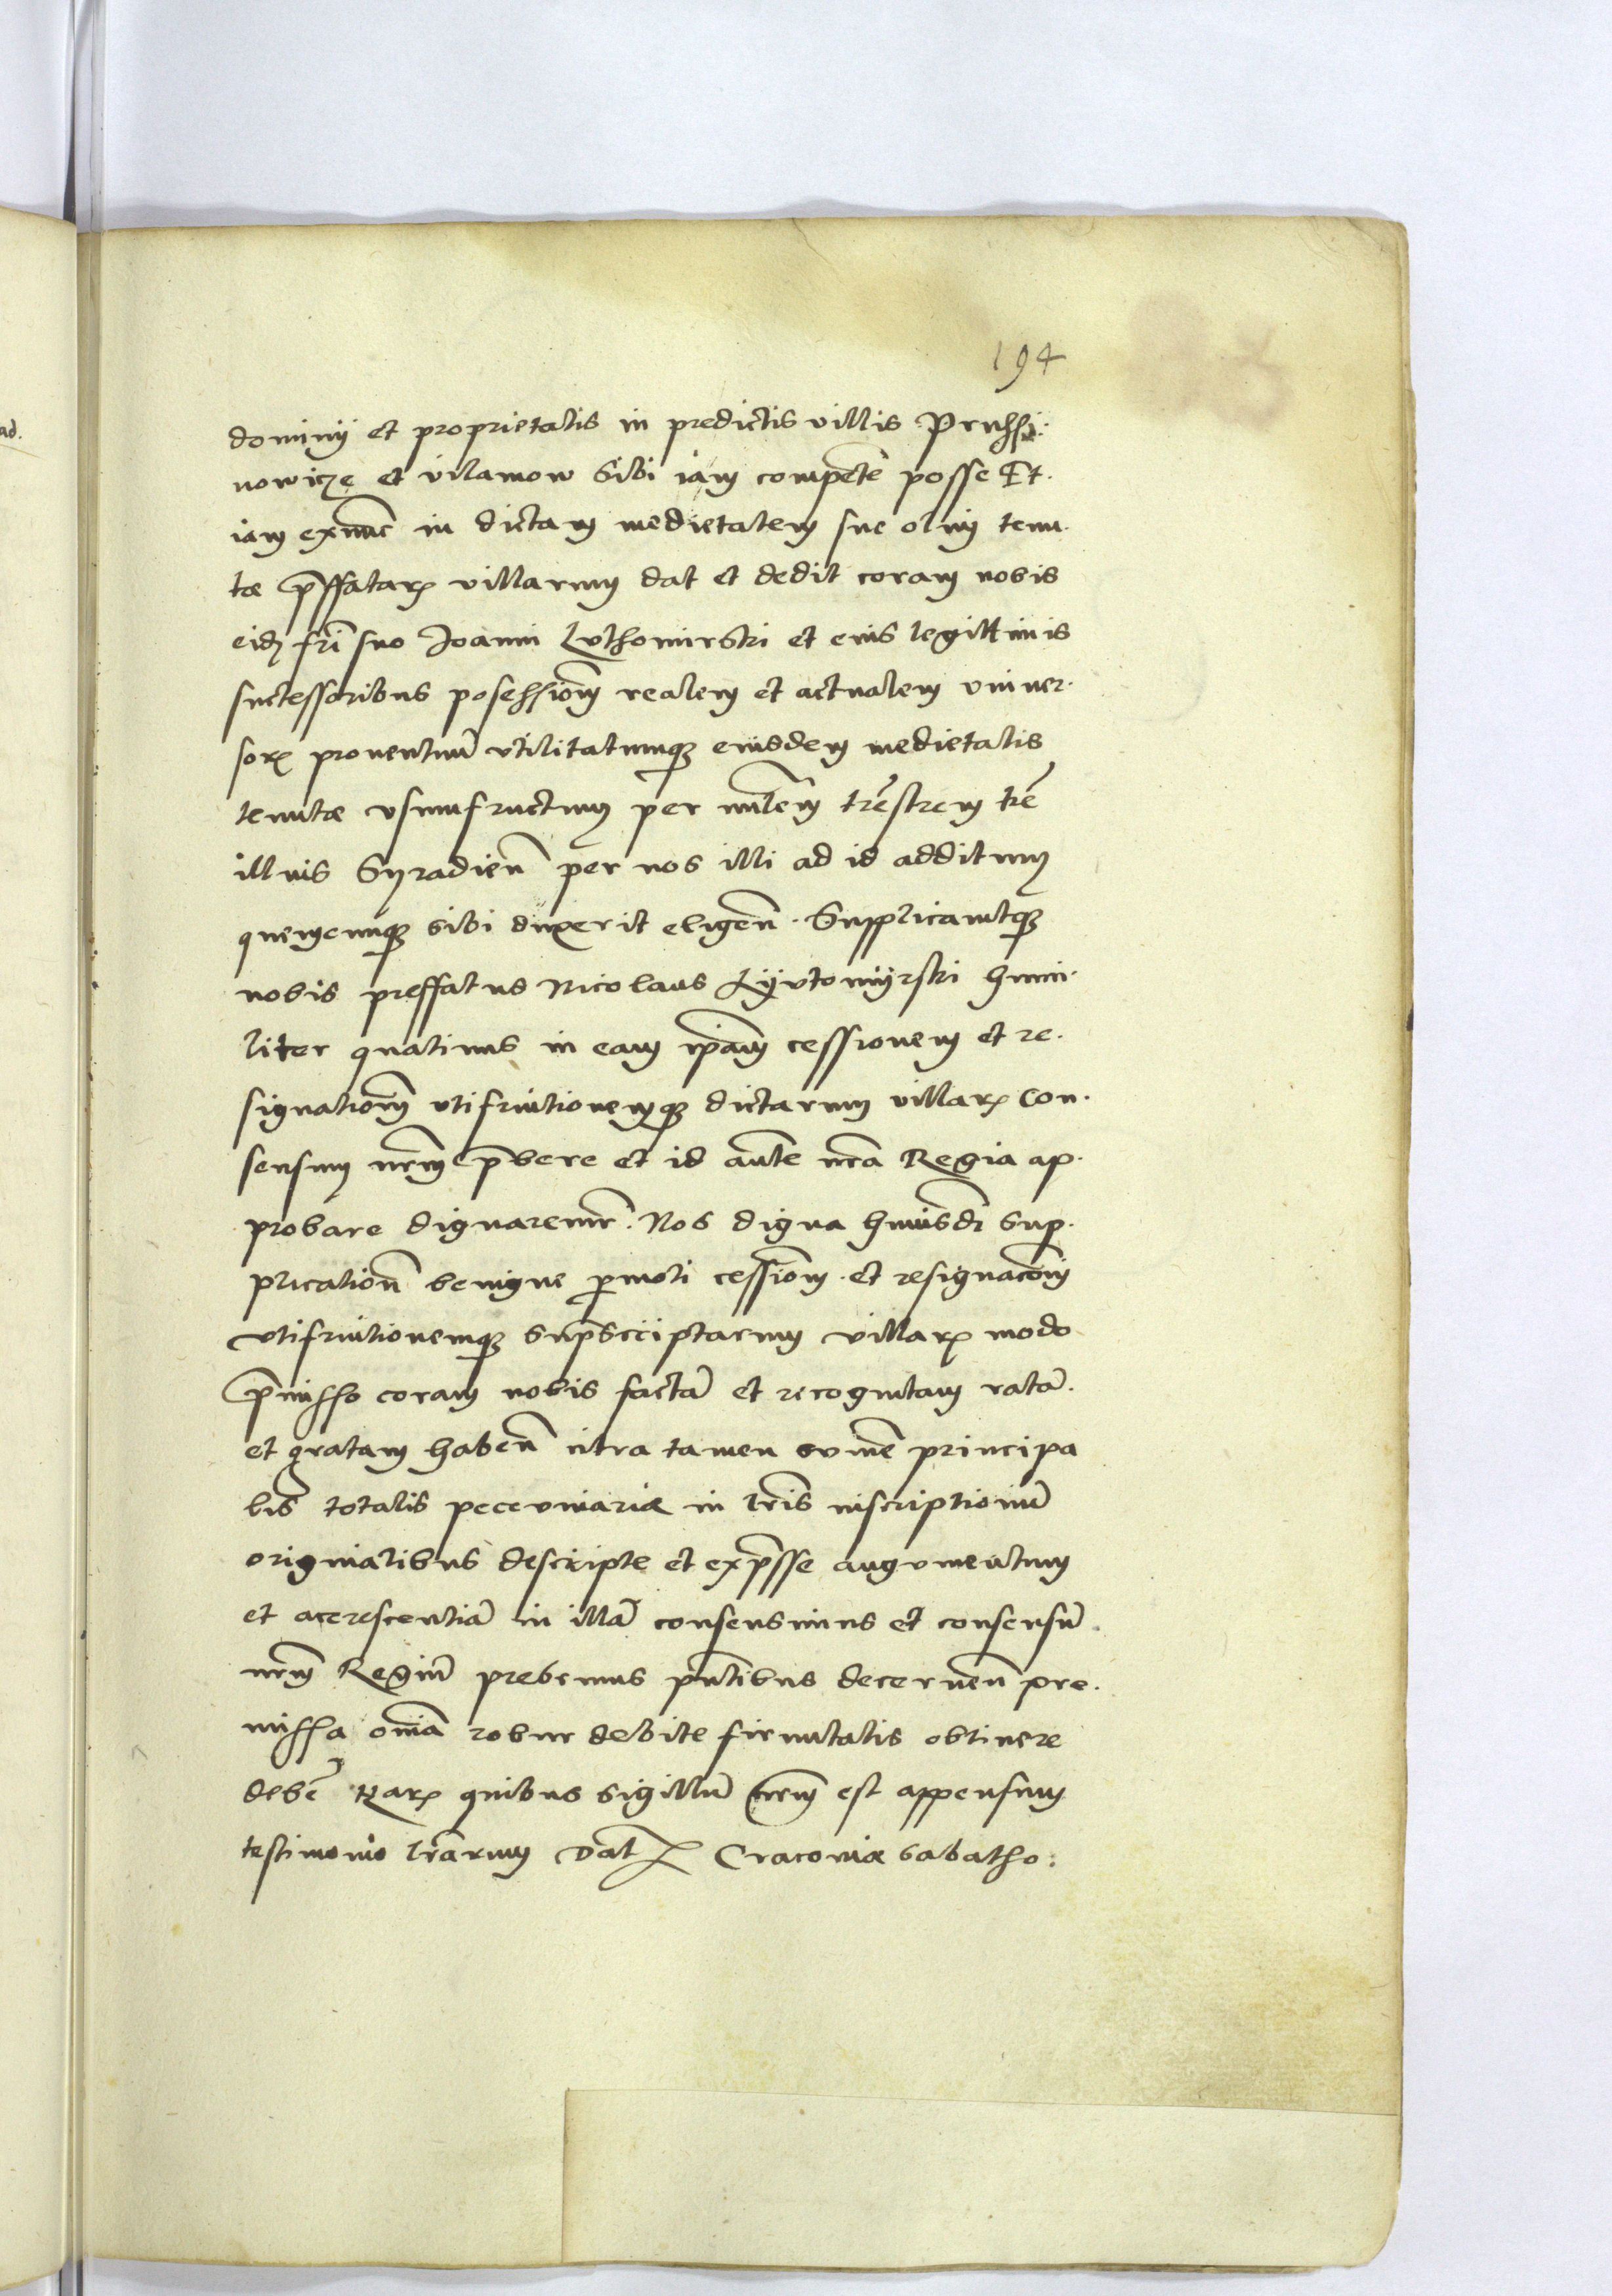 194
ad.
dominÿ et proprietatis in predictis villis Prussi:
nowicze et vilamow sibi iam competē posse Et.
iam exnunc in dictam medietatem sue olim tenu.
tæ p̄ffatarꝝ villarum dat et dedit coram nobis
eidꝫ fr̄i suo Joanni Luthomirski et eius legittimis
successoribus posessionē̄m realem et actualem vniuer.
sorꝝ prouentuū vtilitatumqꝫ eiusdem medietatis
tenutæ vsumfructum per mīlem tr̄estrem tr̄e
illius Syradien̄ per nos illi ad id additum
quemcunqꝫ sibi duxerit eligen̄. Supplicauitqꝫ
nobis preffatus Nicolaus Lÿvtomÿrski humi.
liter quatinus in eam ip̄am cessionem et re.
signatiom̄ vtifruitionemqꝫ dictarum villarꝝ con.
sensum nr̄m p̄bere et id aut̄e nr̄a Regia ap.
probare dignaremr̄. Nos digna huiusdī sup.
plication̄ benigne ꝑmoti cessiom̄. et resignacom̄
vtifruitionemqꝫ sup̄scriptarum villarꝝ modo
p̄misso coram nobis factā et recognitam ratā.
et gratam haben̄ citra tamen sum̄e principa
lis totalis pecevniariæ in lr̄is inscriptionū
originalibus descripte et exp̄sse augvmentum
et accrescentiā in illā consensimus et consensū.
nr̄m Regiū prebemus pn̄tibus decernen̄ pre.
missa om̄ia robur debite firmitatis obtinere
debē harꝝ quibus sigillū nr̄m est appensum
testimonio lr̄arum Dat Cracoviæ sabatho: